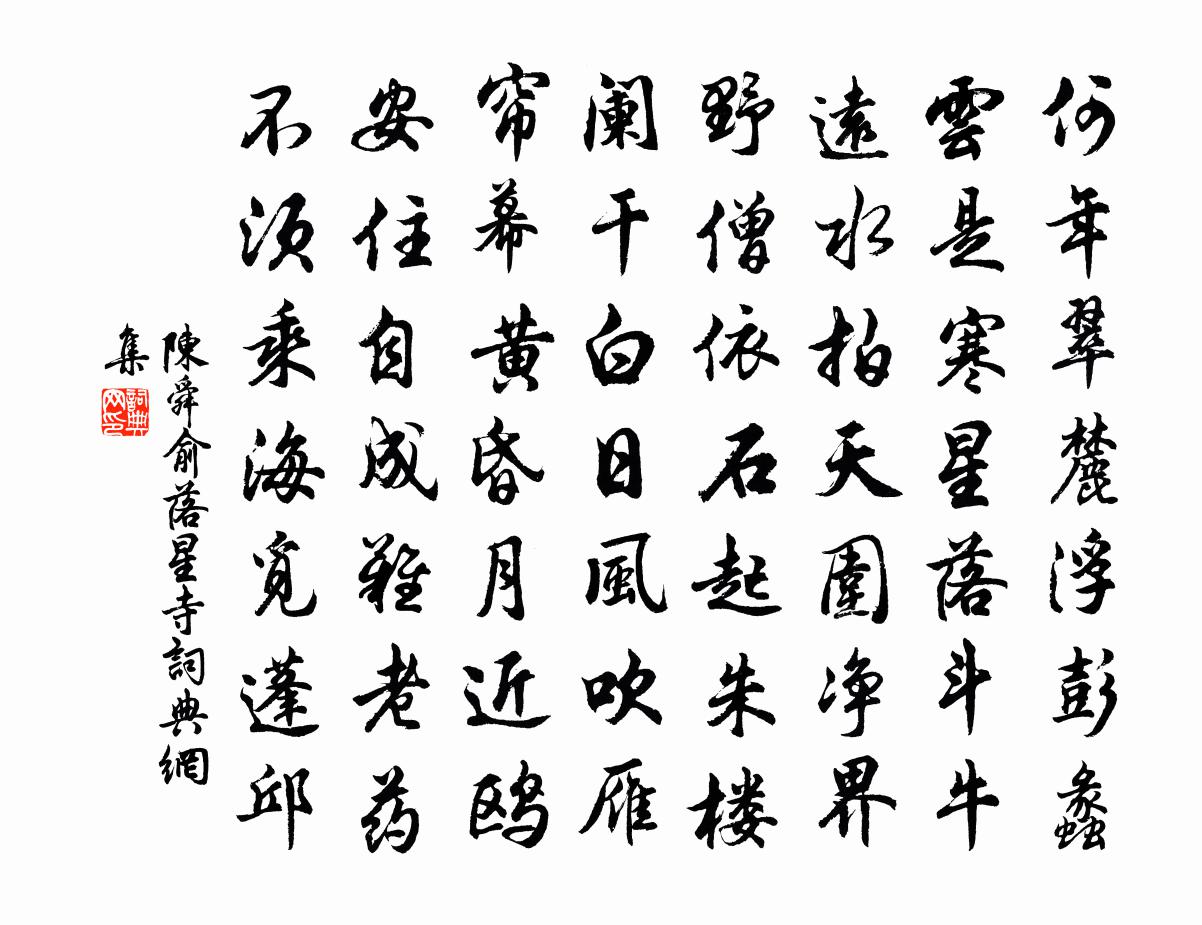 何年翠麓浮彭蠡
雲是寒星落斗牛
遠水拍天圍净界
野僧依石起朱楼
阑干白日風吹雁
帘幕黄昏月近鸥
安住自成難老药
不须乘海觅蓬邱
陳舜俞落星寺詞典網
集
詞典网印